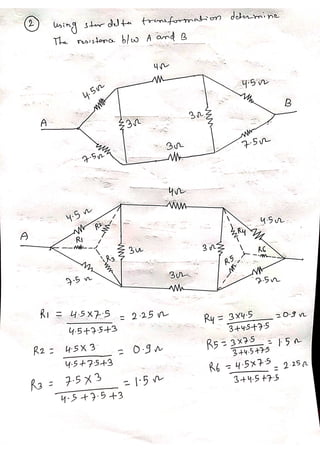 ② using star delta transformation determine
The resistance b/w A and B
4Ω
4.5Ω
4.5Ω
B
A
3Ω
3Ω
7.5Ω
3Ω
7.5Ω
4Ω
4.5Ω
R2
R4
4.5Ω
A
R1
3Ω
3Ω
R6
R3
R5
7.5Ω
3Ω
7.5Ω
R1 = 4.5x7.5 / 4.5+7.5+3 = 2.25Ω
R4 = 3x4.5 / 3+4.5+7.5 = 0.9Ω
R2 = 4.5x3 / 4.5+7.5+3 = 0.9Ω
R5 = 3x7.5 / 3+4.5+7.5 = 1.5Ω
R3 = 7.5x3 / 4.5+7.5+3 = 1.5Ω
R6 = 4.5x7.5 / 3+4.5+7.5 = 2.25Ω